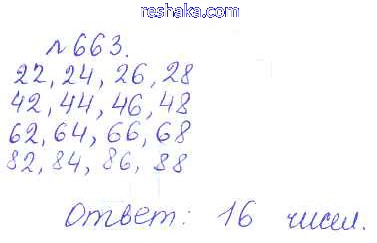 reshaka.com
№663.
22, 24, 26, 28
42, 44, 46, 48
62, 64, 66, 68
82, 84, 86, 88
Ответ: 16 чисел.